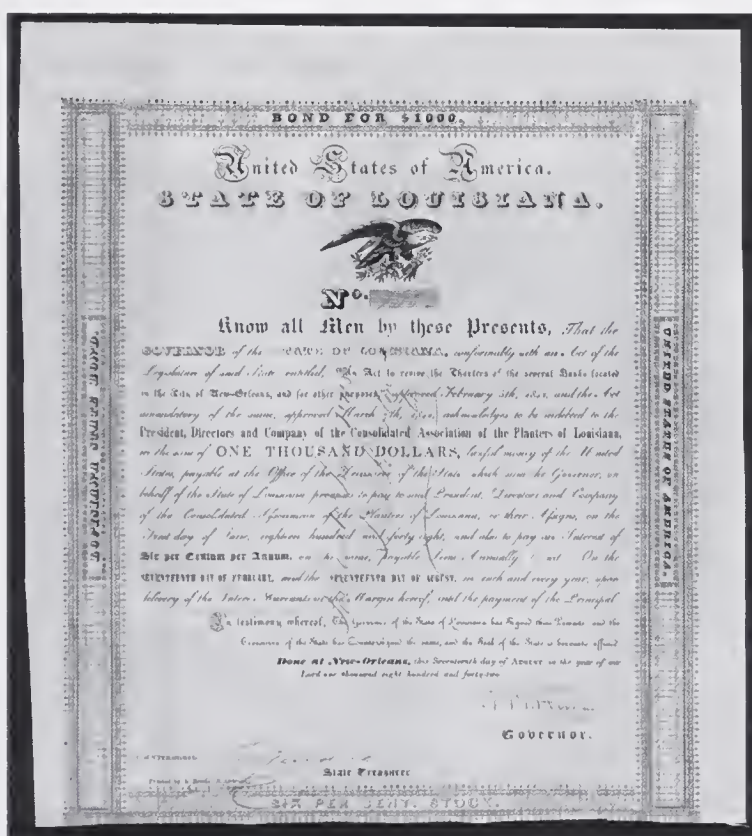 BOND FOR $1000.
United States of America.
STATE OF LOUISIANA.
No.
Know all Men by these Presents, That the
GOVERNOR of the STATE OF LOUISIANA, conformably with an Act of the
Legislature of said State entitled, "An Act to revive the Charters of the several Banks located
in the City of New-Orleans, and for other purposes, approved February 5th, 1842, and the Act
amendatory of the same, approved March 7th, 1842, acknowledges to be indebted to the
President, Directors and Company of the Consolidated Association of the Planters of Louisiana,
in the sum of ONE THOUSAND DOLLARS, lawful money of the United
States, payable at the Office of the Treasurer of the State which sum the Governor, on
behalf of the State of Louisiana promises to pay to said President, Directors and Company
of the Consolidated Association of the Planters of Louisiana, or their Assigns, on the
First day of June, eighteen hundred and forty eight, and also to pay an Interest of
Six per Centum per Annum, on the same, payable Semi Annually, to wit: On the
SEVENTEENTH DAY OF FEBRUARY, and the SEVENTEENTH DAY OF AUGUST, in each and every year, upon
delivery of the Interest Warrants at the Margin hereof, until the payment of the Principal
In testimony whereof, The Governor of the State of Louisiana has signed these Presents and the
Treasurer of the State has Countersigned the same, and the Seal of the State is hereunto affixed
Done at New-Orleans, this Seventeenth day of August in the year of our
Lord one thousand eight hundred and forty-two
Governor.
State Treasurer
SIX PER CENT. STOCK.
UNITED STATES OF AMERICA.